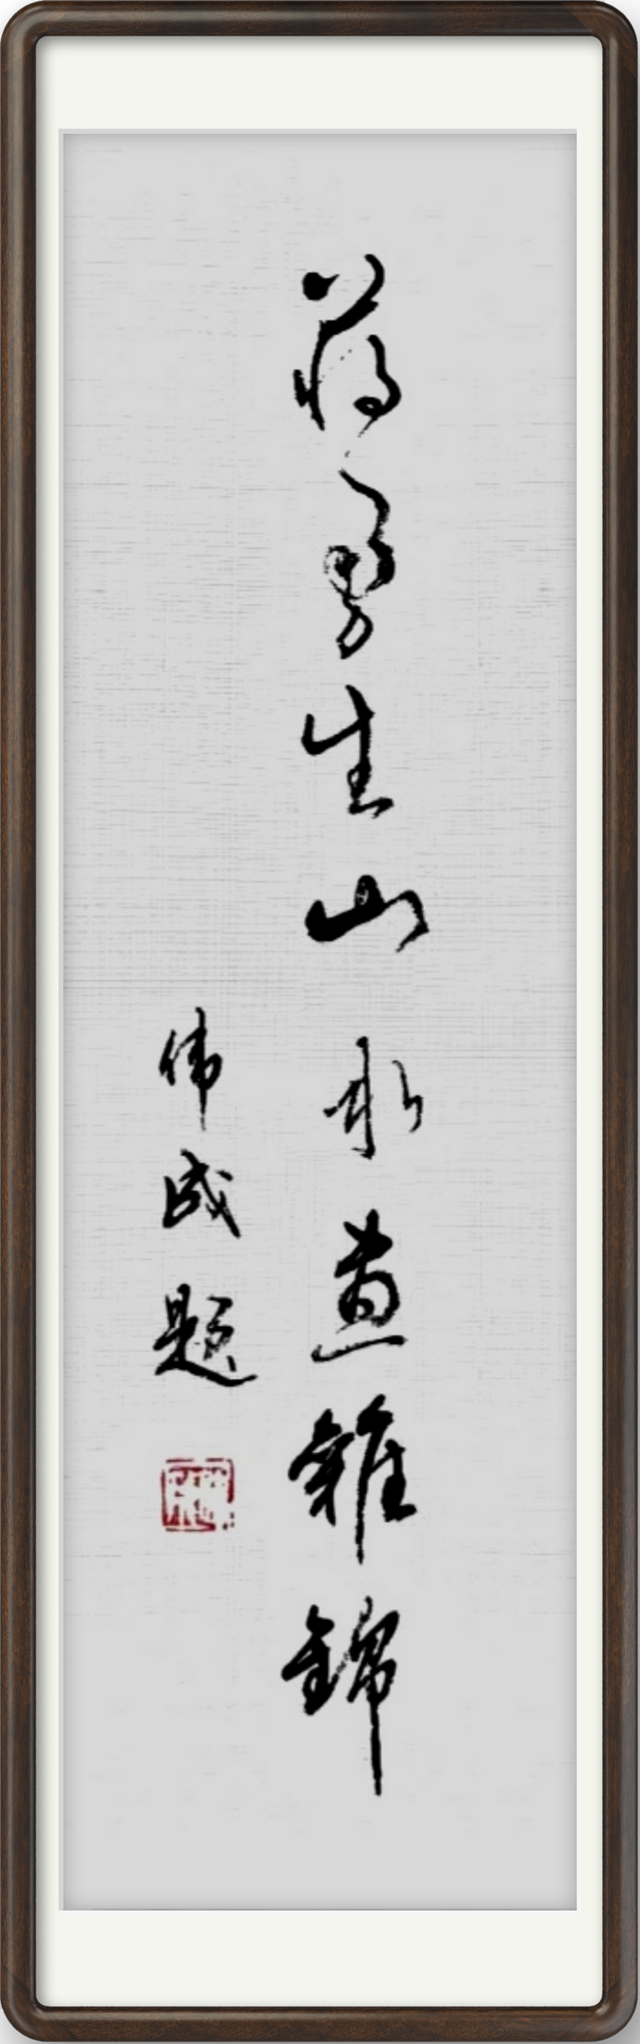 蒋勇生山水画雜錦
伟成题